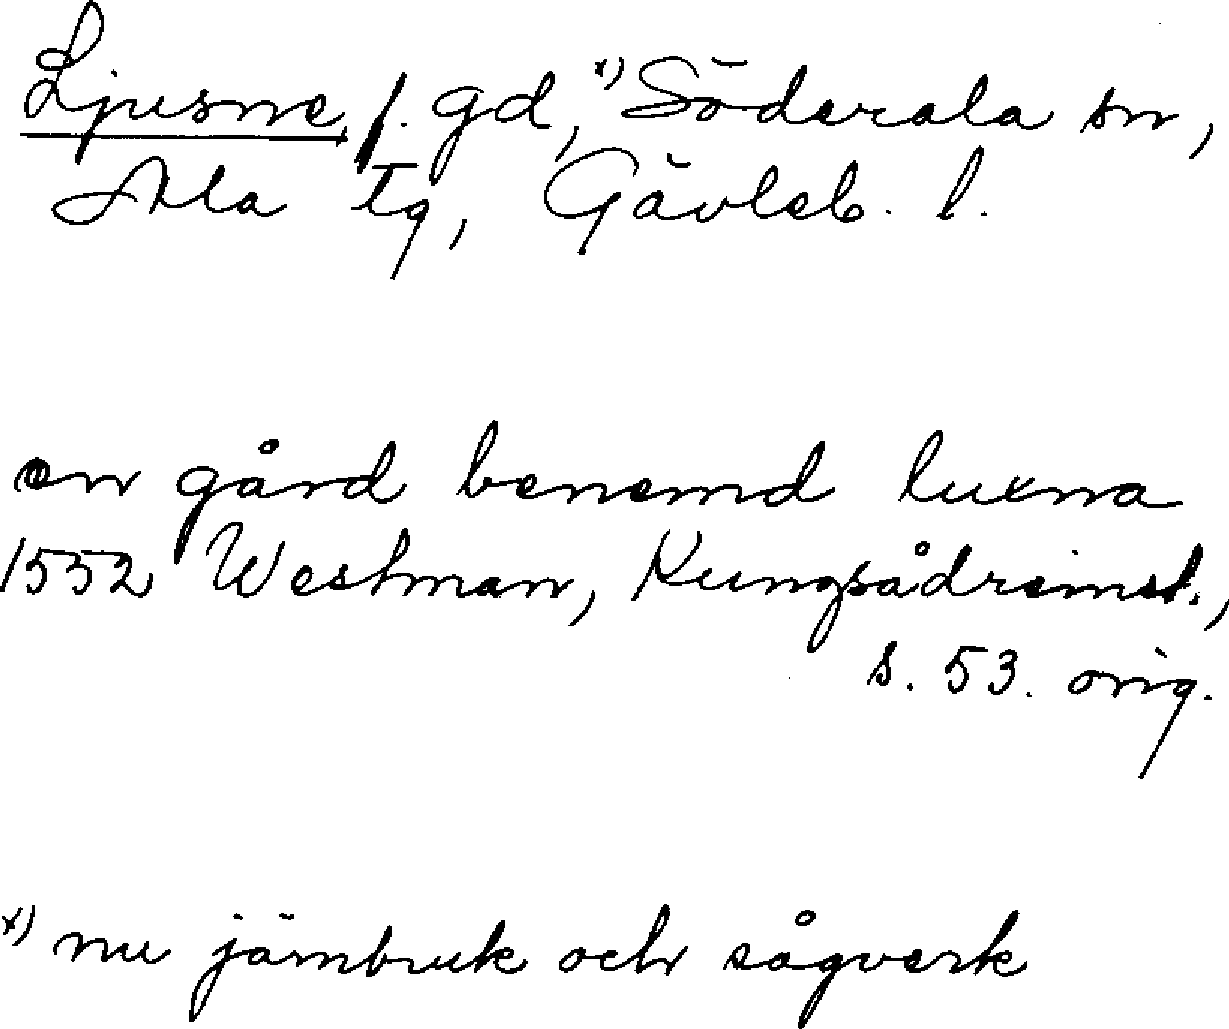 Ljusne, f. gd, x) Söderala sn,
Ala tg, Gävleb. l.
en gård benemd luxna
1552 Westman, Kungsådreinst.,
s. 53. orig.
x) nu järnbruk och sågverk